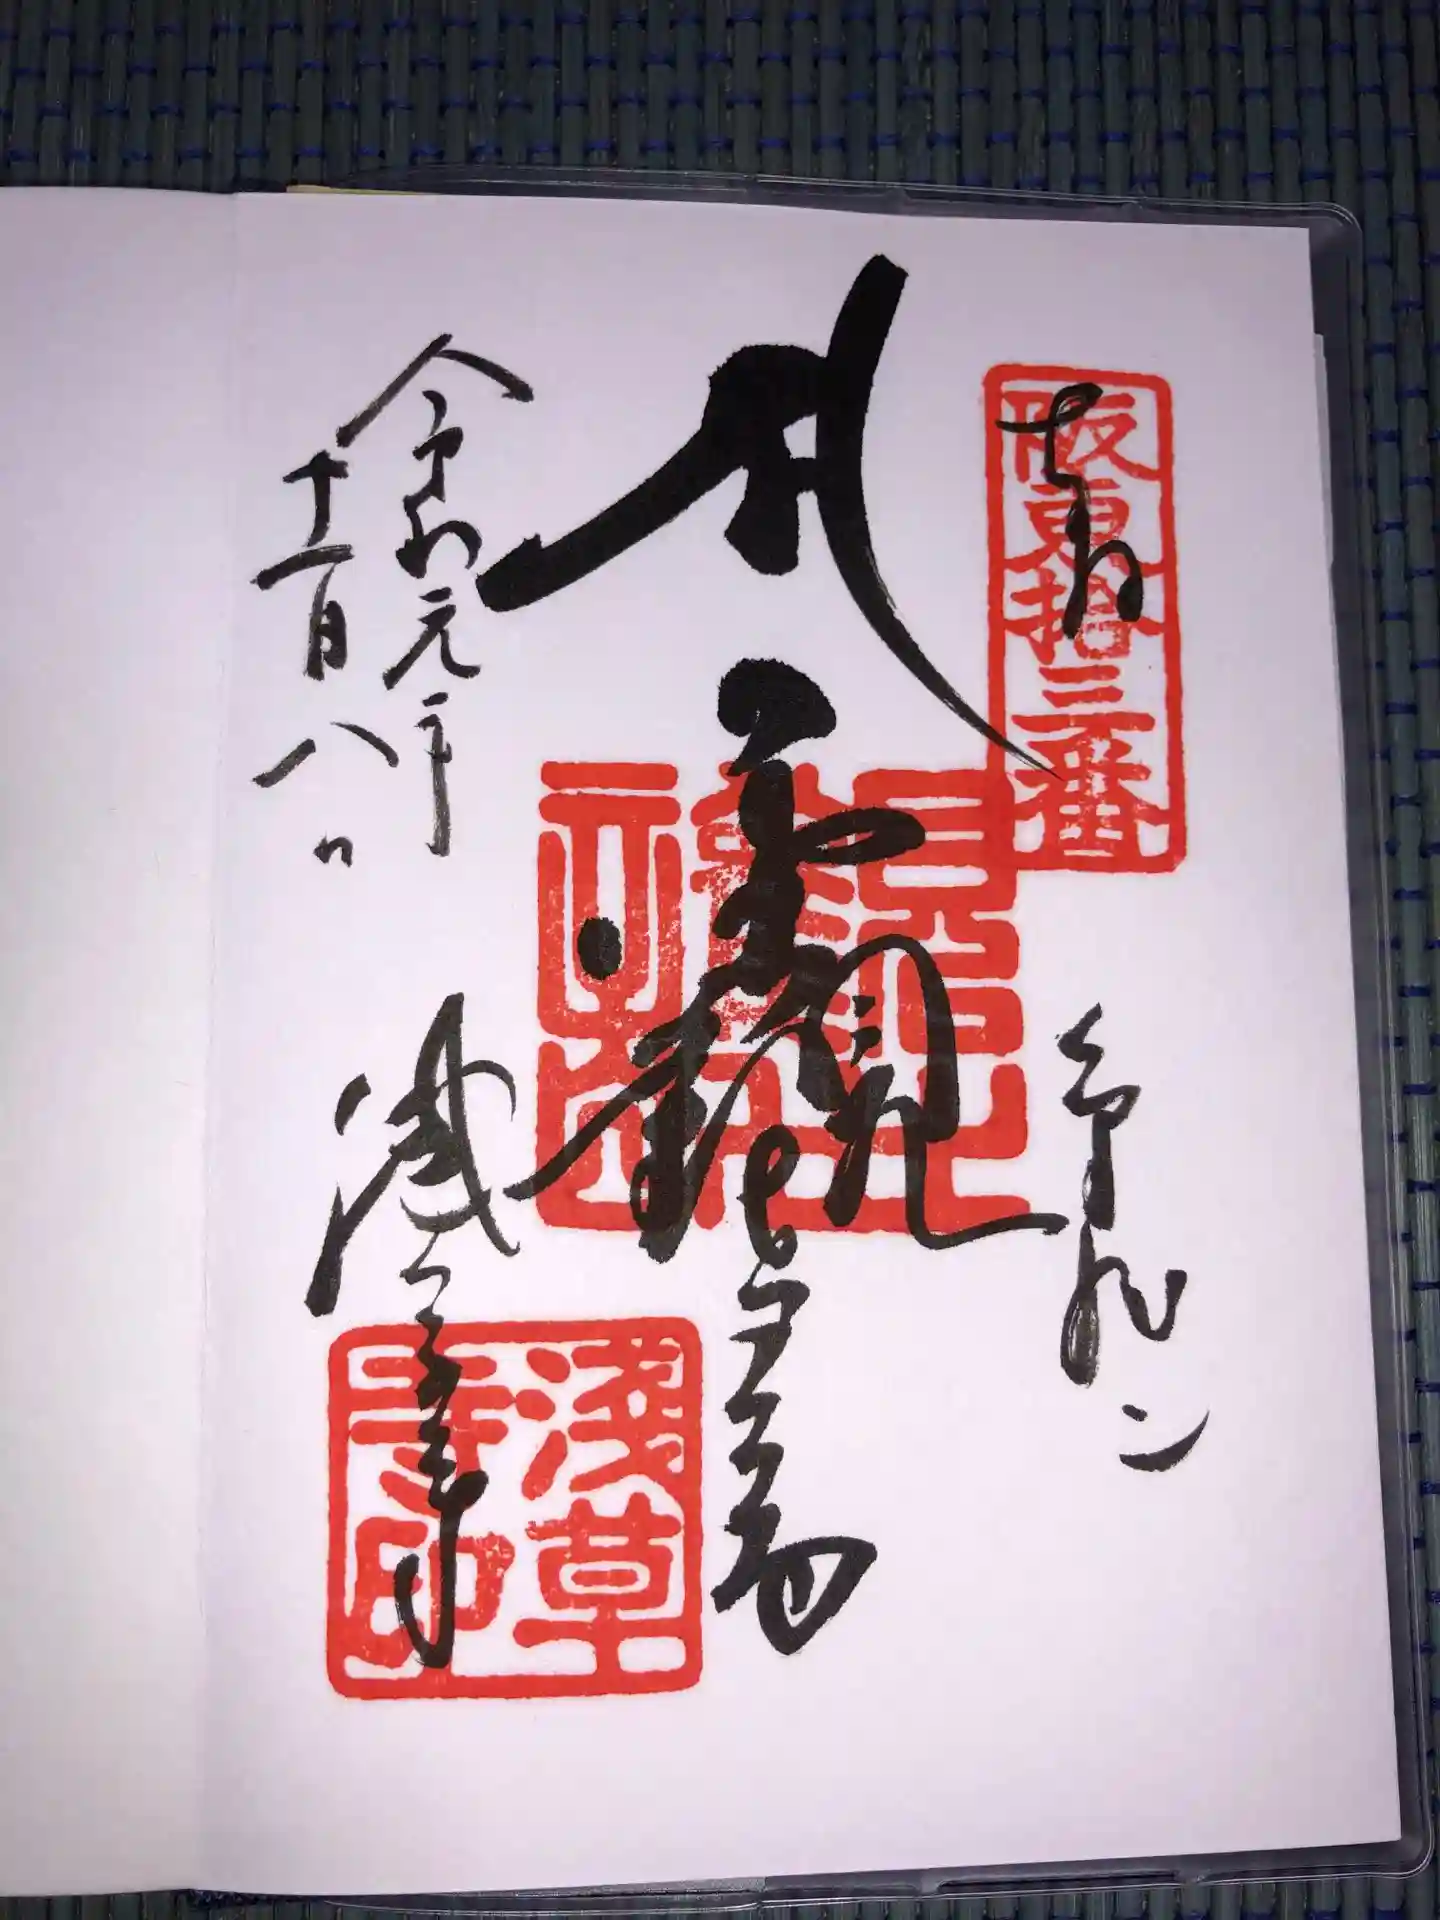 阪東拾三番
奉拝
金龍山
聖観世音
令和元年
十一月八日
浅草寺
淺草
寺印